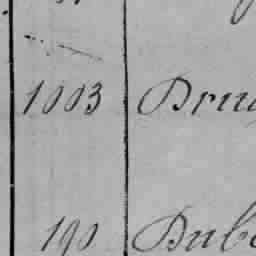 1003 Drug
190 Dube